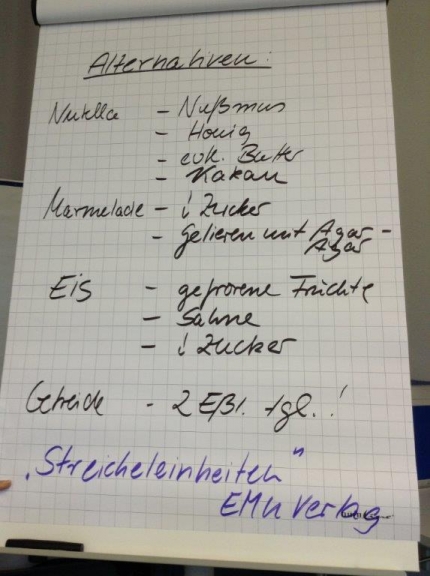 Alternativen:
Nutella - Nußmus
- Honig
- evtl. Butter
- Kakau
Marmelade - ↓ Zucker
- gelieren mit Agar-
Agar
Eis - gefrorene Früchte
- Sahne
- ↓ Zucker
Getreide - 2 Eßl. tgl.!
„Streicheleinheiten"
EMU Verlag